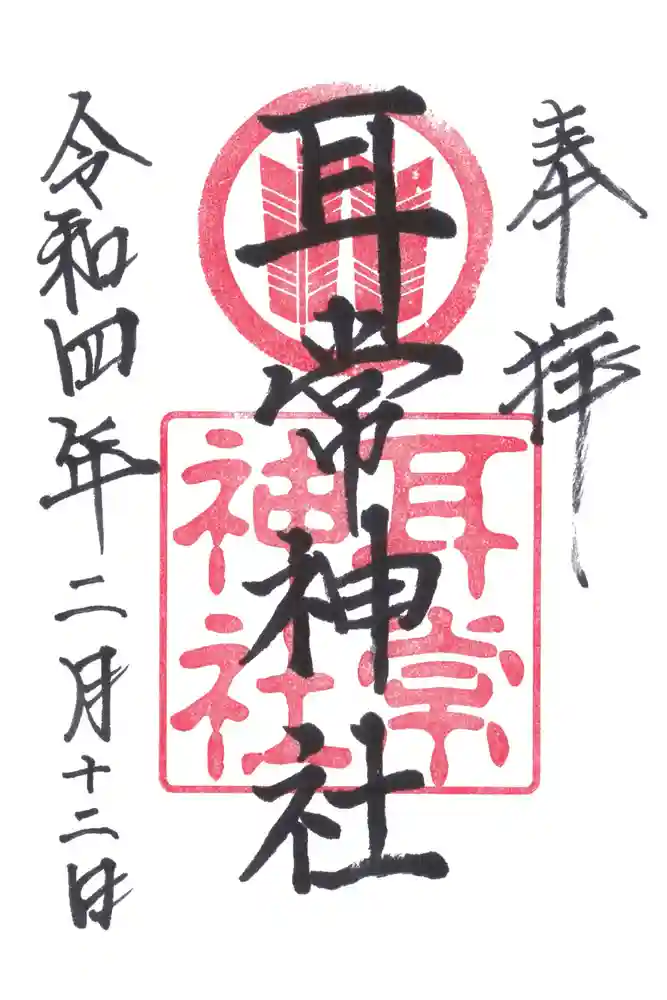 奉拝
耳常神社
耳常
神社
令和四年二月十二日